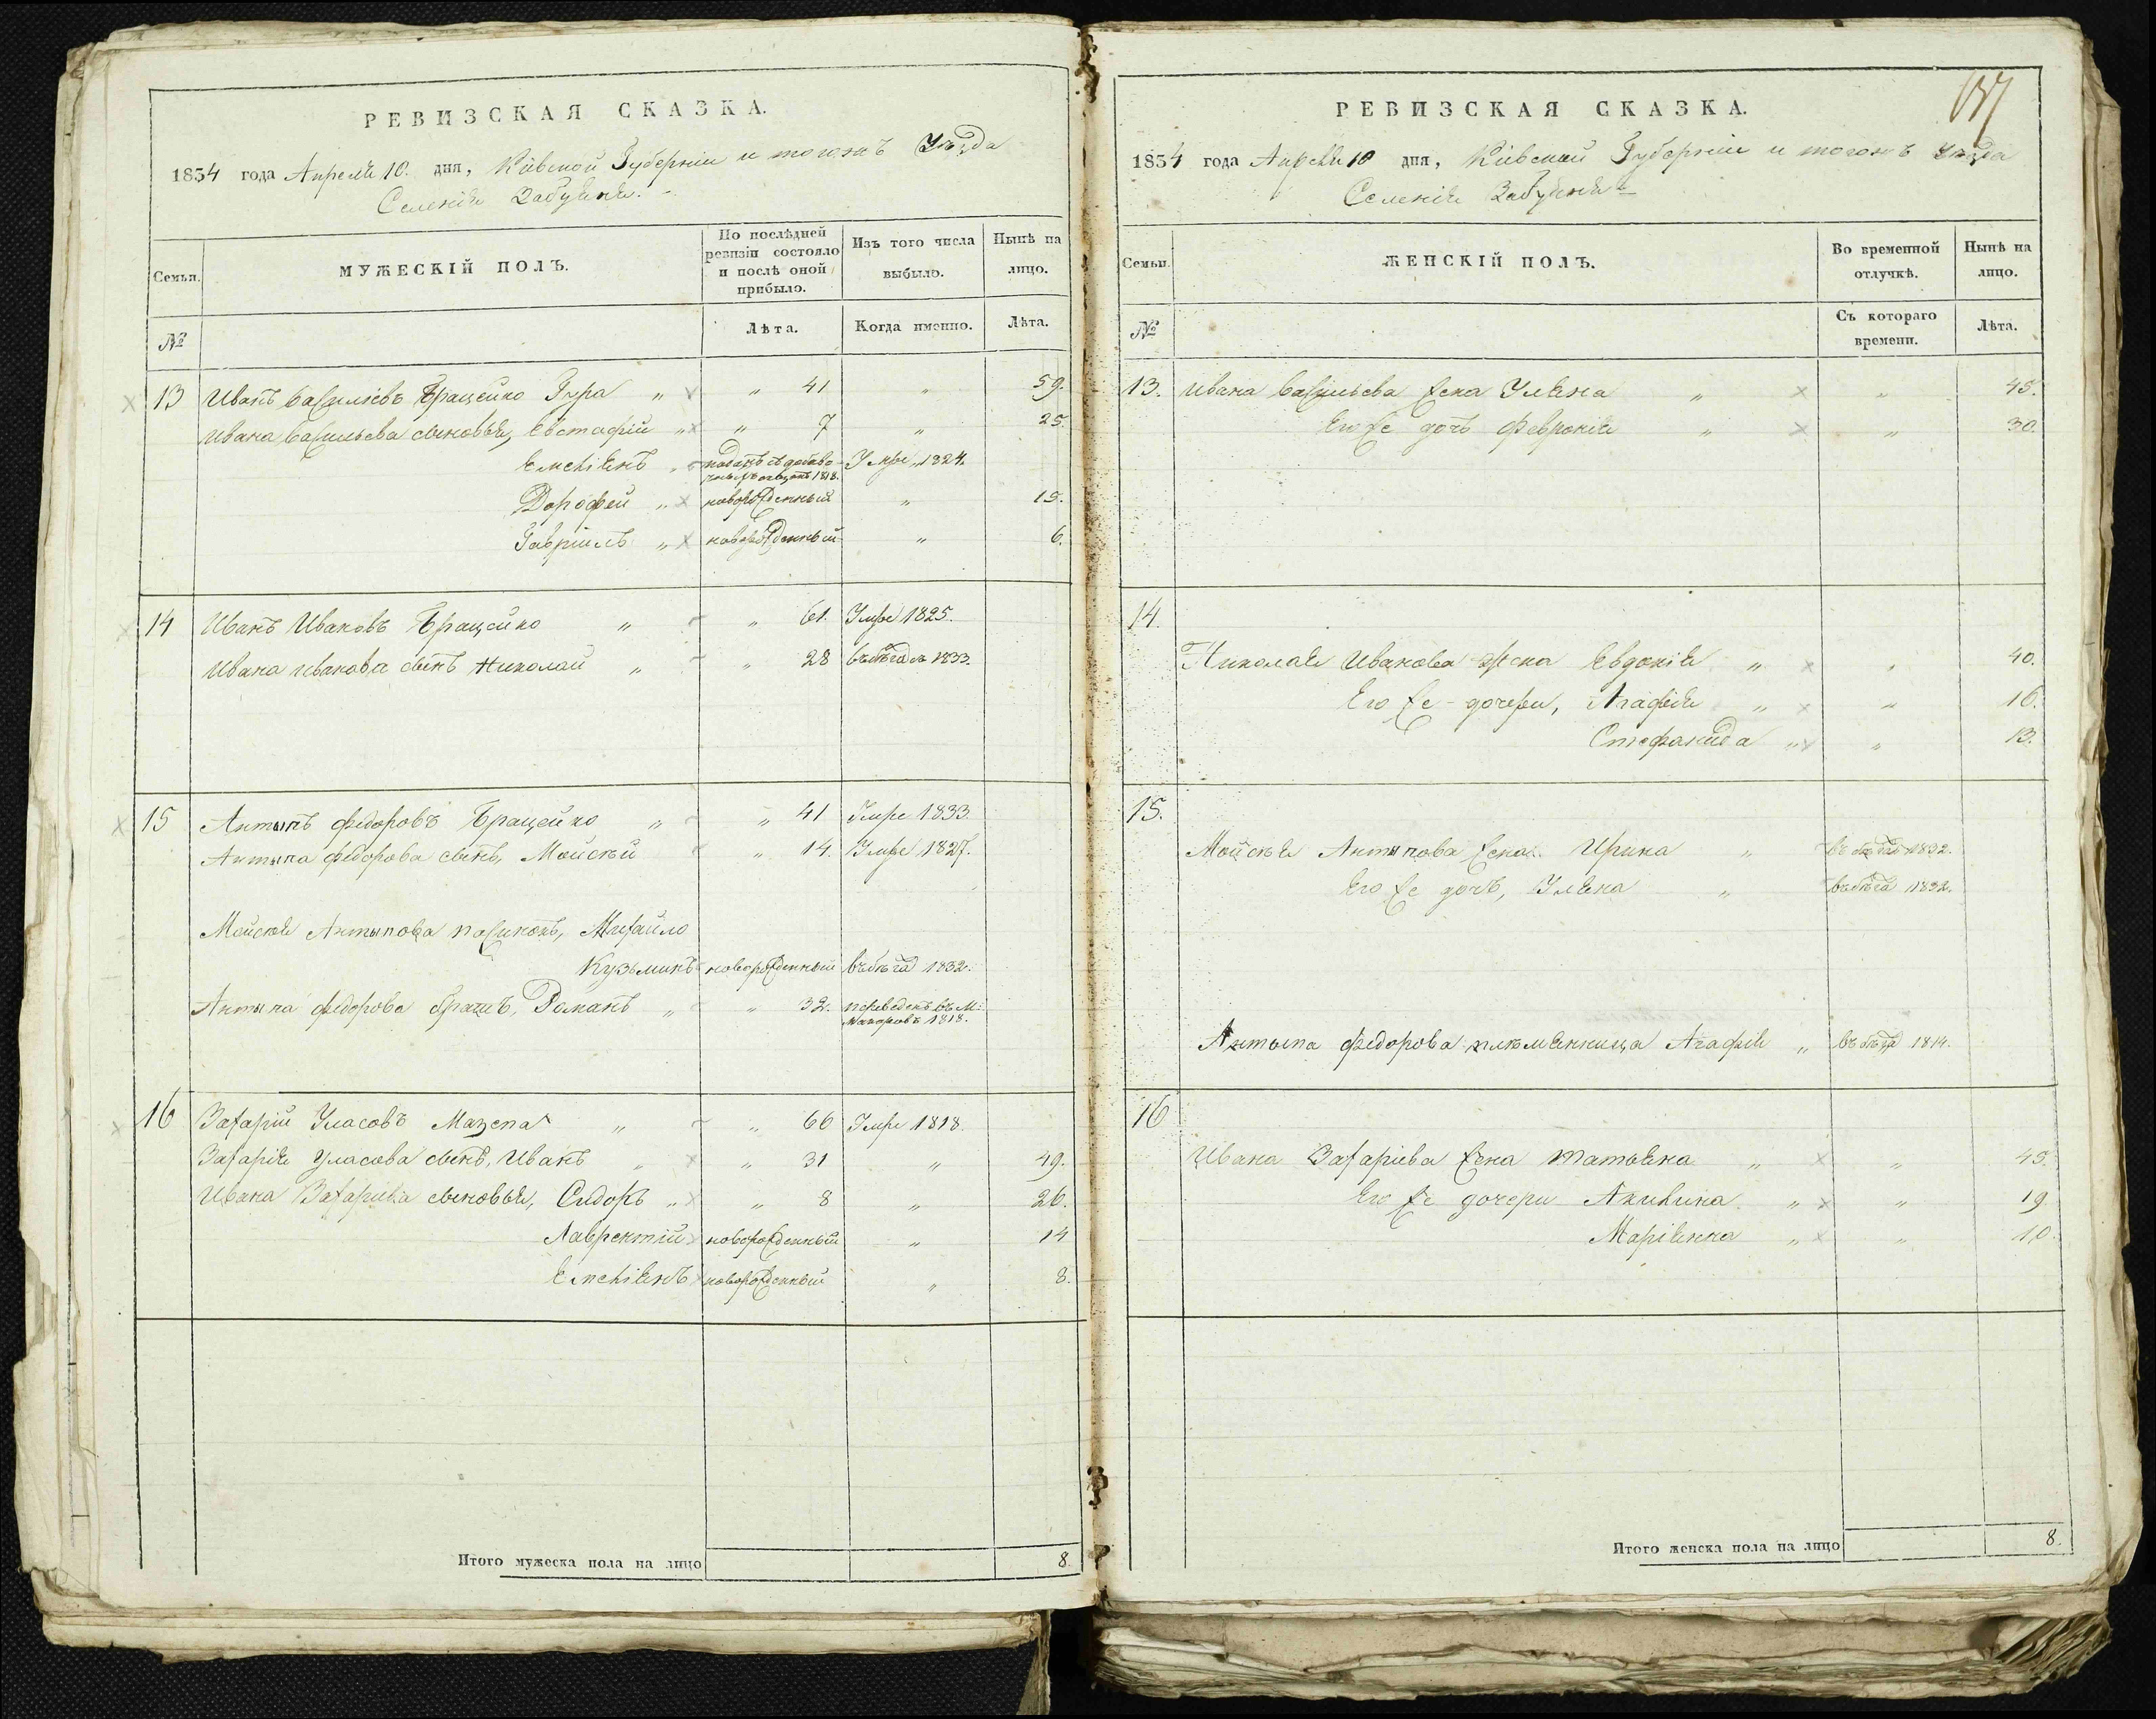 РЕВИЗСКАЯ СКАЗКА.
1834 года Апреля 10. дня, Кіевской Губерніи и тогожъ Уѣзда
Селенія Забуянья.
Семьи. МУЖЕСКІЙ ПОЛЪ. По послѣдней ревизіи состояло и послѣ оной прибыло. Изъ того числа выбыло. Нынѣ на лицо.
№ Лѣта. Когда именно. Лѣта.
13 Иванъ Васильевъ Працейко Гура " " 41 " 59.
Ивана Васильева сыновья, Евстафій " " 7 " 25.
Емельянъ " поданъ съ добавочныхъ 1818. Умре 1824.
Дорофей " новорожденный " 15.
Гавріилъ " новорожденный " 6.
14 Иванъ Ивановъ Працейко " " 61. Умре 1825.
Ивана Иванова сынъ Николай " " 28 въ бѣгахъ 1833.
15 Антыпъ Федоровъ Працейко " " 41 Умре 1833.
Антыпа Федорова сынъ, Мойсѣй " 14. Умре 1827.
Мойсѣя Антыпова пасинокъ, Михайло
Кузьминъ новорожденный въ бѣгах 1832.
Антыпа Федорова братъ, Романъ " " 32. переведенъ въ М: Макаровъ 1818.
16 Захарій Уласовъ Мазепа " " 66 Умре 1818.
Захарія Уласова сынъ, Иванъ " " 31 " 49.
Ивана Захаріева сыновья, Сидоръ " " 8 " 26.
Лаврентій новорожденный " 14
Емельянъ новорожденный " 8.
Итого мужеска пола на лицо 8.
РЕВИЗСКАЯ СКАЗКА.
1834 года Апреля 10 дня, Кіевской Губерніи и тогожъ уѣзда
Селенія Забуянья
Семьи. ЖЕНСКІЙ ПОЛЪ. Во временной отлучкѣ. Нынѣ на лицо.
№ Съ котораго времени. Лѣта.
13. Ивана Васильева жена Ульяна " " 45.
Его же дочь Февронія " " 30.
14.
Николая Иванова жена Евдокія " " 40.
Его же дочери, Агафія " " 16.
Стефанида " " 13.
15.
Мойсѣя Антыпова жена Ирина " въ бѣгах 1832.
Его же дочь, Ульяна " въ бѣгах 1832.
Антыпа Федорова племянница Агафія " въ бѣгах 1814.
16
Ивана Захаріева жена Татьяна " " 45.
Его же дочери Акилина " " 19.
Маріянна " " 10.
Итого женска пола на лицо 8.